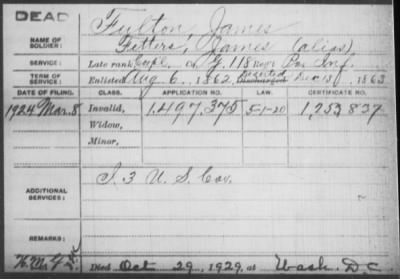 DEAD
Fulton, James
NAME OF SOLDIER: Fitters, James (alias)
SERVICE: Late rank Corpl. Co. F. 118 Reg't Pa. Inf.
TERM OF SERVICE: Enlisted Aug 6, 1862 Discharged deserted Dec 1863
DATE OF FILING. CLASS. APPLICATION NO. LAW. CERTIFICATE NO.
1924 Mar. 8 Invalid, 1,497,375 5-1-20 1,253,837
Widow,
Minor,
ADDITIONAL SERVICES: I. 3 U. S. Cav.
REMARKS:
Died Oct 29, 1929, at Wash. D.C.